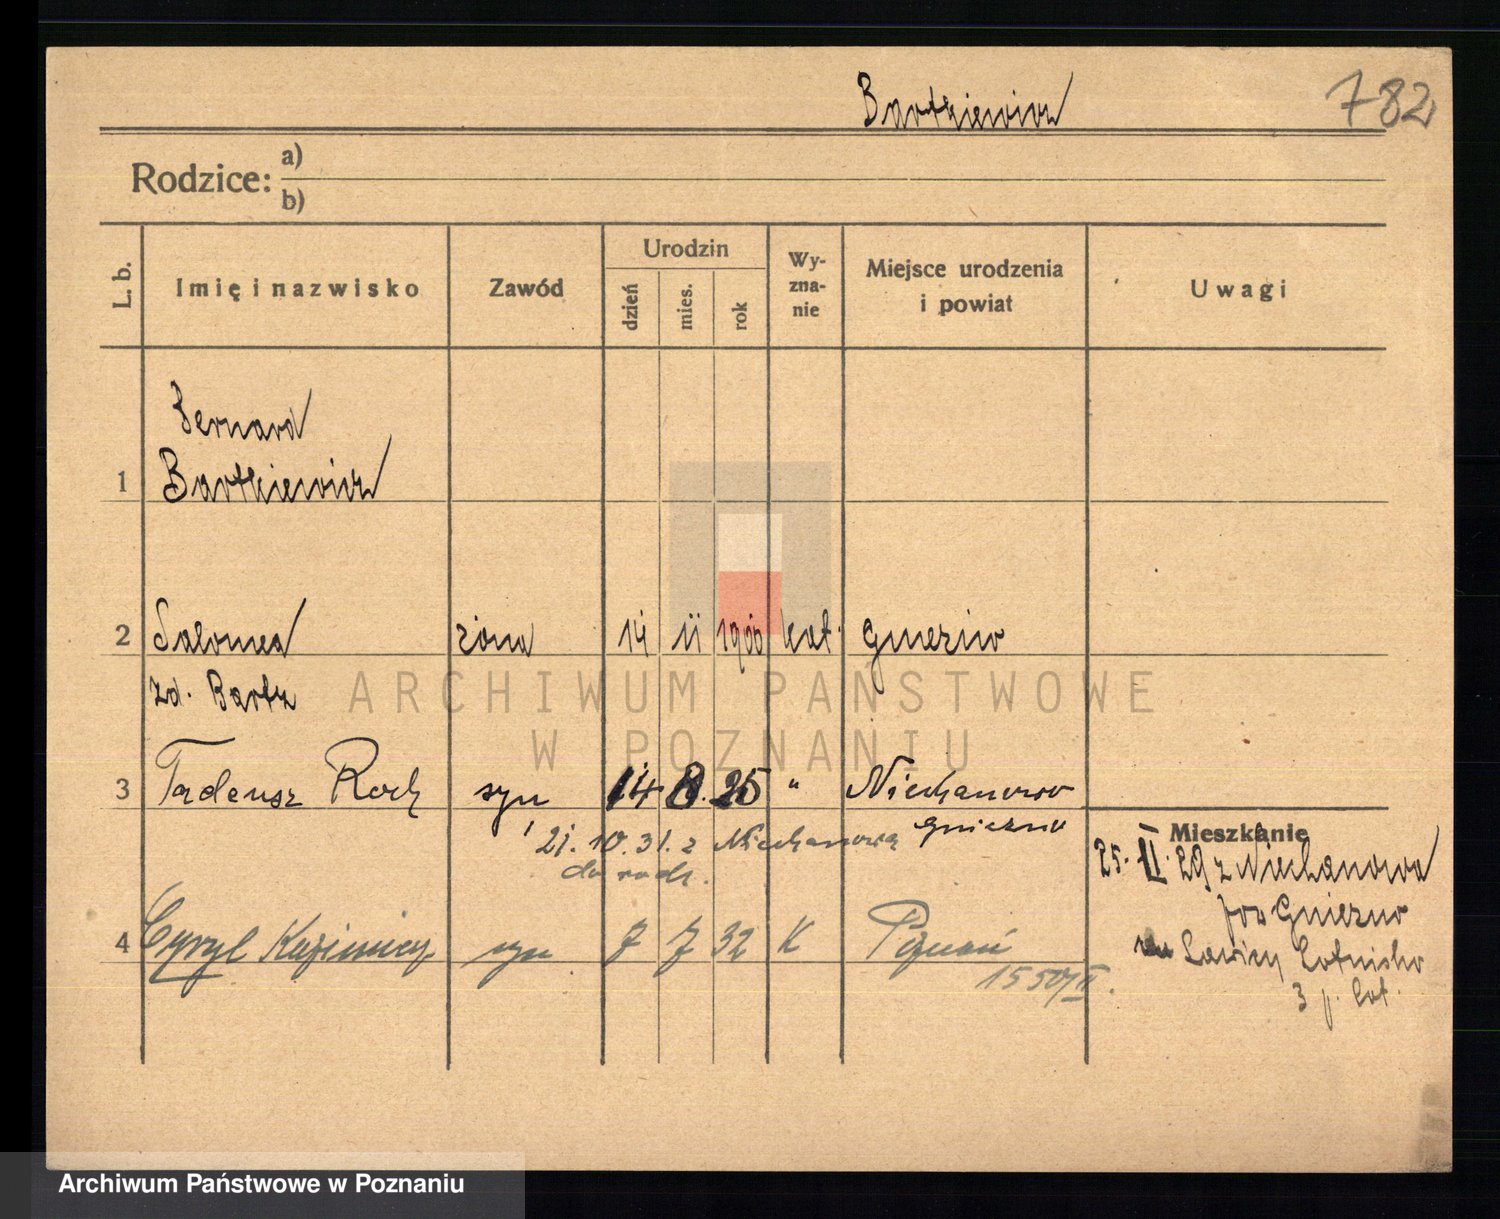 Bartkiewicz
782
Rodzice: a)
b)
L. b.
Imię i nazwisko
Zawód
Urodzin
dzień
mies.
rok
Wy-
zna-
nie
Miejsce urodzenia
i powiat
Uwagi
Bernard
1 Bartkiewicz
2 Salomea żona 14 11 1900 kat. Gniezno
zd. Bartz
ARCHIWUM PAŃSTWOWE
W POZNANIU
3 Tadeusz Roch syn 14. 8. 25 " Niechanowo
Gniezno
21. 10. 31. z Niechanowa
do rodz.
Mieszkanie
25. II. 29 z Niechanowa
pow Gniezno
Ławicy Lotnisko
3 p. lot.
4 Cyryl Kazimierz syn 7 7 32 K Poznań
1550/II.
Archiwum Państwowe w Poznaniu